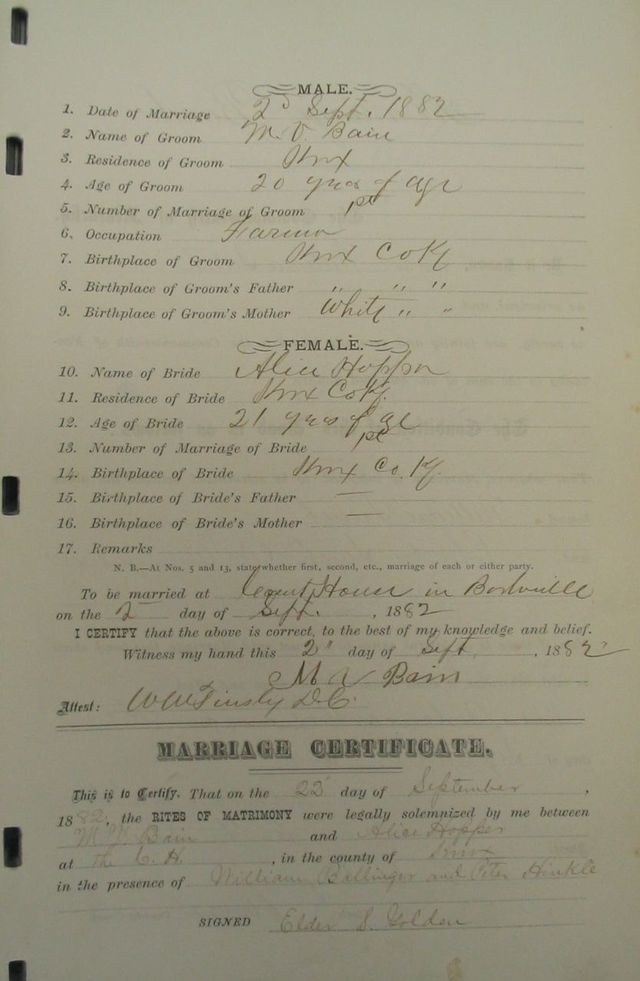 MALE.
1. Date of Marriage 2d Sept. 1882
2. Name of Groom M. V. Bain
3. Residence of Groom Knox
4. Age of Groom 20 years of age
5. Number of Marriage of Groom 1st
6. Occupation Farmer
7. Birthplace of Groom Knox Co Ky
8. Birthplace of Groom's Father " " "
9. Birthplace of Groom's Mother White " "
FEMALE.
10. Name of Bride Alice Hopper
11. Residence of Bride Knox Co Ky.
12. Age of Bride 21 years of age
13. Number of Marriage of Bride 1st
14. Birthplace of Bride Knox Co. Ky.
15. Birthplace of Bride's Father —
16. Birthplace of Bride's Mother —
17. Remarks
N. B.—At Nos. 5 and 13, state whether first, second, etc., marriage of each or either party.
To be married at Court House in
on the 2 day of Sept. , 1882
I CERTIFY that the above is correct, to the best of my knowledge and belief.
Witness my hand this 2" day of Sept , 1882
M V Bain
Attest: W W Tinsly D.C.
MARRIAGE CERTIFICATE.
This is to Certify, That on the 22 day of September ,
1882, the RITES OF MATRIMONY were legally solemnized by me between
M. V. Bain and Alice Hopper
at the C. H. , in the county of Knox
in the presence of William Ballinger and Peter Hinkle
SIGNED Elder S. Golden